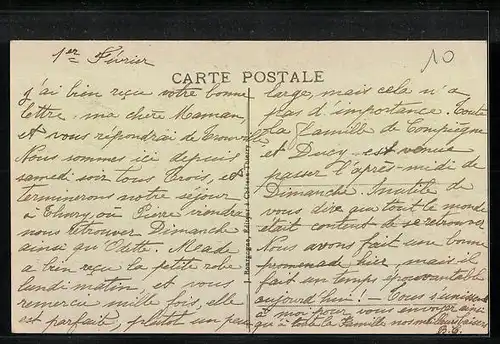 1er Février
10
CARTE POSTALE
J'ai bien reçu votre bonne
lettre, ma chère Maman,
et vous répondrai de Trouville.
Nous sommes ici depuis
samedi soir tous trois, et
terminerons notre séjour
à Thury, où Pierre viendra
nous retrouver Dimanche
ainsi qu'Odette. Meade
a bien reçu la petite robe
lundi matin, et vous
remercie mille fois, elle
est parfaite, plutôt un peu
J. Bourgogne, Editeur, Château-Thierry
large, mais cela n'a
pas d'importance. Toute
la Famille de Compiègne
et Ducy est venue
passer l'après-midi de
Dimanche. Inutile de
vous dire que tout le monde
était content de se retrouver
Nous avons fait une bonne
promenade hier, mais il
fait un temps épouvantable
aujourd'hui! - Tous s'unissent
à moi pour vous envoyer ainsi
qu'à toute la Famille nos meilleurs baisers